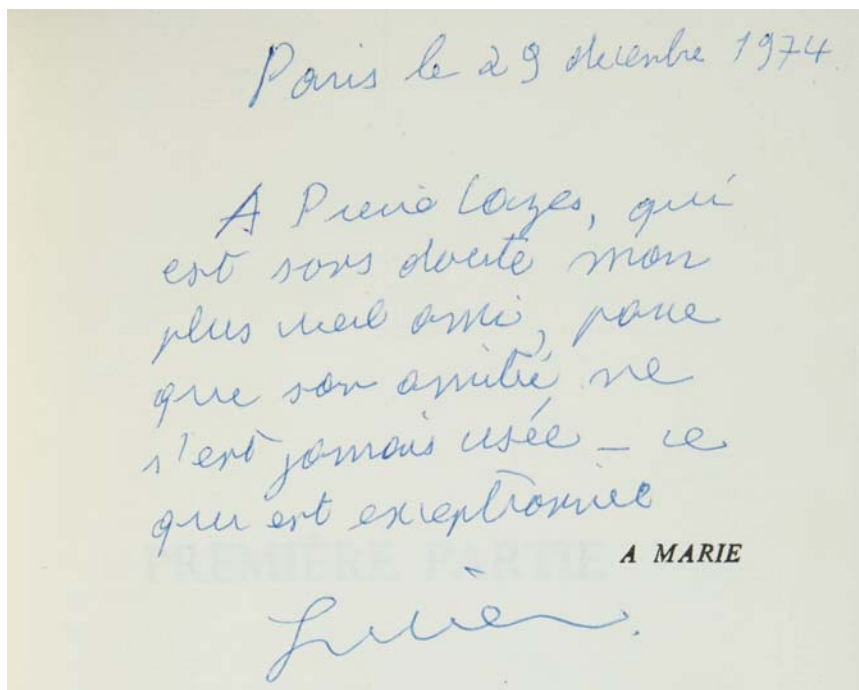 Paris le 29 décembre 1974
A Pierre Lazes, qui
est sans doute mon
plus vieil ami, parce
que son amitié ne
s'est jamais usée – ce
qui est exceptionnel
A MARIE
PREMIÈRE PARTIE
Lucien